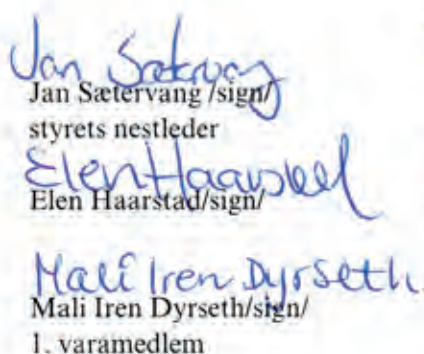 Jan Sætervang
Jan Sætervang /sign/
styrets nestleder
Elen Haarstad
Elen Haarstad/sign/
Mali Iren Dyrseth
Mali Iren Dyrseth/sign/
1. varamedlem